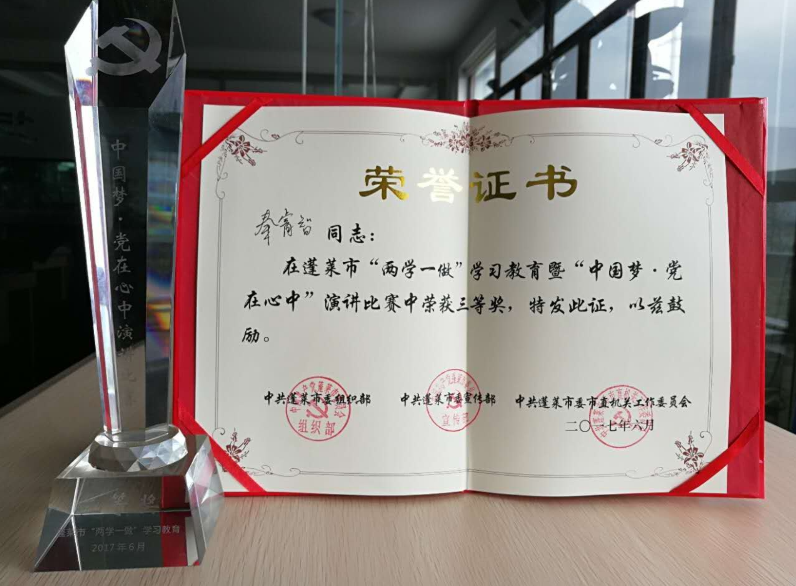 中国梦·党在心中演讲
"两学一做"学习教育
2017年6月
荣誉证书
同志：
在蓬莱市“两学一做”学习教育暨“中国梦·党
在心中”演讲比赛中荣获三等奖，特发此证，以兹鼓
励。
中共蓬莱市委组织部
中共蓬莱市委宣传部
中共蓬莱市委市直机关工作委员会
二〇一七年六月
组织部
宣传部